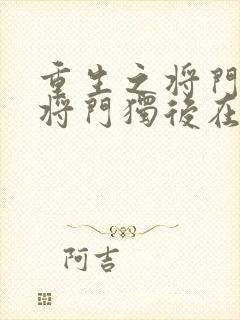 重生之将門
将門獨後在
阿吉